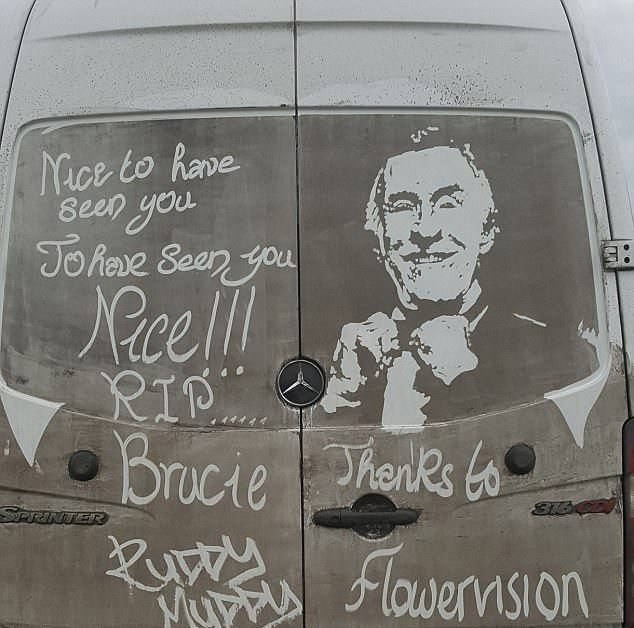 Nice to have
seen you
To have seen you
Nice!!!
RIP......
Brucie
Thanks to
SPRINTER
316 CDI
RUDDY
MUDDY
Flowervision